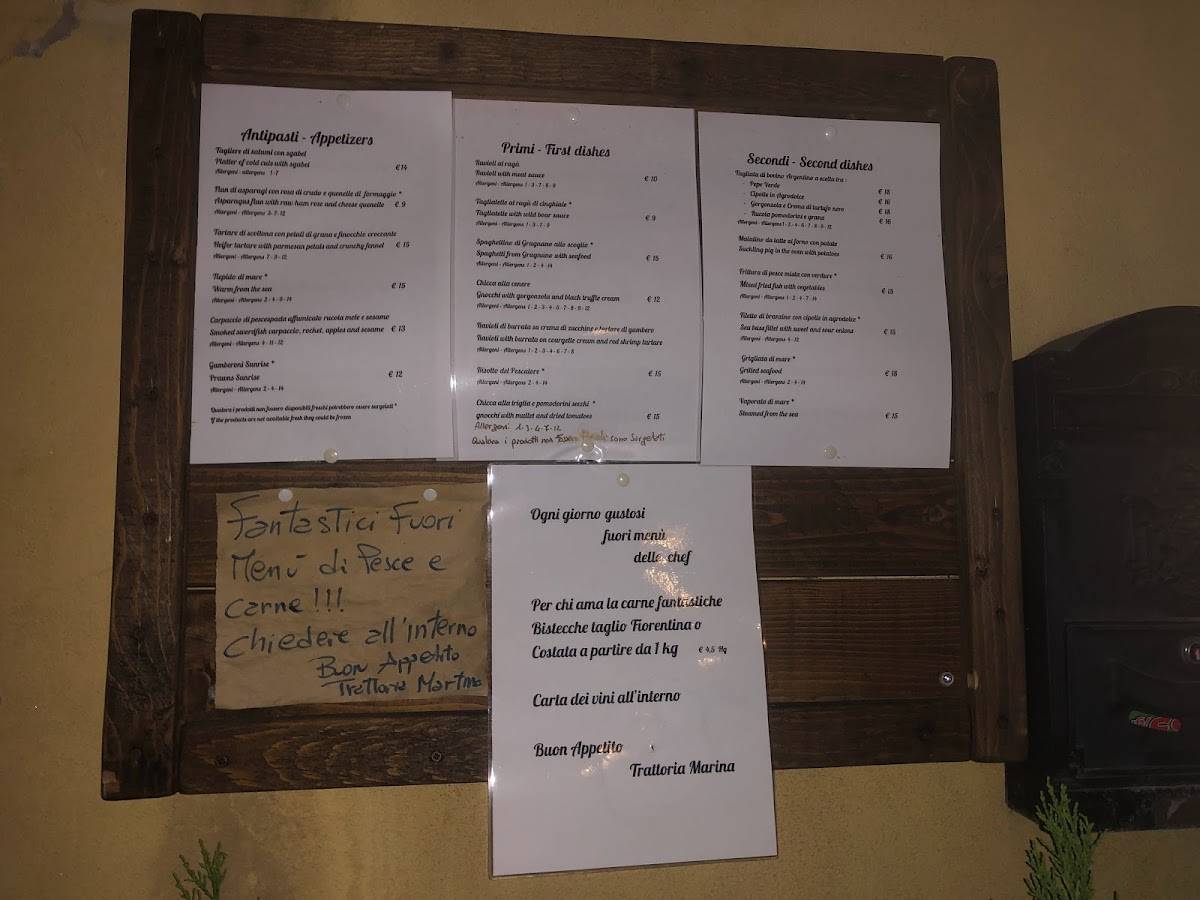 Antipasti - Appetizers
Tagliere di salumi con sgabel
Platter of cold cuts with sgabel € 14
Allergeni - allergens 1-7
Flan di asparagi con rosa di crudo e quenelle di formaggio *
Asparagus flan with raw ham rose and cheese quenelle € 9
Allergeni - Allergens 3-7-12
Tartare di scottona con petali di grana e finocchio croccante
Heifer tartare with parmesan petals and crunchy fennel € 15
Allergeni - Allergens 7 - 9 - 12
Tiepido di mare *
Warm from the sea € 15
Allergeni - Allergens 2 - 4 - 9 - 14
Carpaccio di pescespada affumicato rucola mele e sesamo
Smoked swordfish carpaccio, rocket, apples and sesame € 13
Allergeni - Allergens 4 - 11 - 12
Gamberoni Sunrise *
Prawns Sunrise € 12
Allergeni - Allergens 2 - 4 - 14
Qualora i prodotti non fossero disponibili freschi potrebbero essere surgelati *
If the products are not available fresh they could be frozen
Primi - First dishes
Ravioli al ragù
Ravioli with meat sauce € 10
Allergeni - Allergens 1 - 3 - 7 - 8 - 9
Tagliatelle al ragù di cinghiale *
Tagliatelle with wild boar sauce € 9
Allergeni - Allergens 1 - 3 - 7 - 9
Spaghettino di Gragnano allo scoglio *
Spaghetti from Gragnano with seafood € 15
Allergeni - Allergens 1 - 2 - 4 - 14
Chicca alla cenere
Gnocchi with gorgonzola and black truffle cream € 12
Allergeni - Allergens 1 - 2 - 3 - 4 - 6 - 7 - 8 - 9 - 12
Ravioli di burrata su crema di zucchine e tartare di gambero
Ravioli with burrata on courgette cream and red shrimp tartare
Allergeni - Allergens 1 - 2 - 3 - 4 - 6 - 7 - 8
Risotto del Pescatore * € 15
Allergeni - Allergens 2 - 4 - 14
Chicca alla triglia e pomodorini secchi *
gnocchi with mullet and dried tomatoes € 15
Allergeni 1-3-4-7-12
Qualora i prodotti non sono Surgelati
Secondi - Second dishes
Tagliata di bovino Argentino a scelta tra :
- Pepe Verde € 18
- Cipolle in Agrodolce € 16
- Gorgonzola e Crema di tartufo nero € 18
- Rucola pomodorini e grana € 16
Allergeni - Allergens 1 - 3 - 4 - 6 - 7 - 8 - 9 - 12
Maialino da latte al forno con patate
Suckling pig in the oven with potatoes € 16
Frittura di pesce mista con verdure *
Mixed fried fish with vegetables € 15
Allergeni - Allergens 1 - 2 - 4 - 7 - 14
Filetto di branzino con cipolle in agrodolce *
Sea bass fillet with sweet and sour onions € 15
Allergeni - Allergens 4 - 12
Grigliata di mare *
Grilled seafood € 18
Allergeni - Allergens 2 - 4 - 14
Vaporata di mare *
Steamed from the sea € 15
Fantastici Fuori
Menù di Pesce e
carne!!!
chiedere all'interno
Buon Appetito
Trattoria Marina
Ogni giorno gustosi
fuori menù
dello chef
Per chi ama la carne fantastiche
Bistecche taglio Fiorentina o
Costata a partire da 1 kg € 4,5 Hg
Carta dei vini all'interno
Buon Appetito
Trattoria Marina